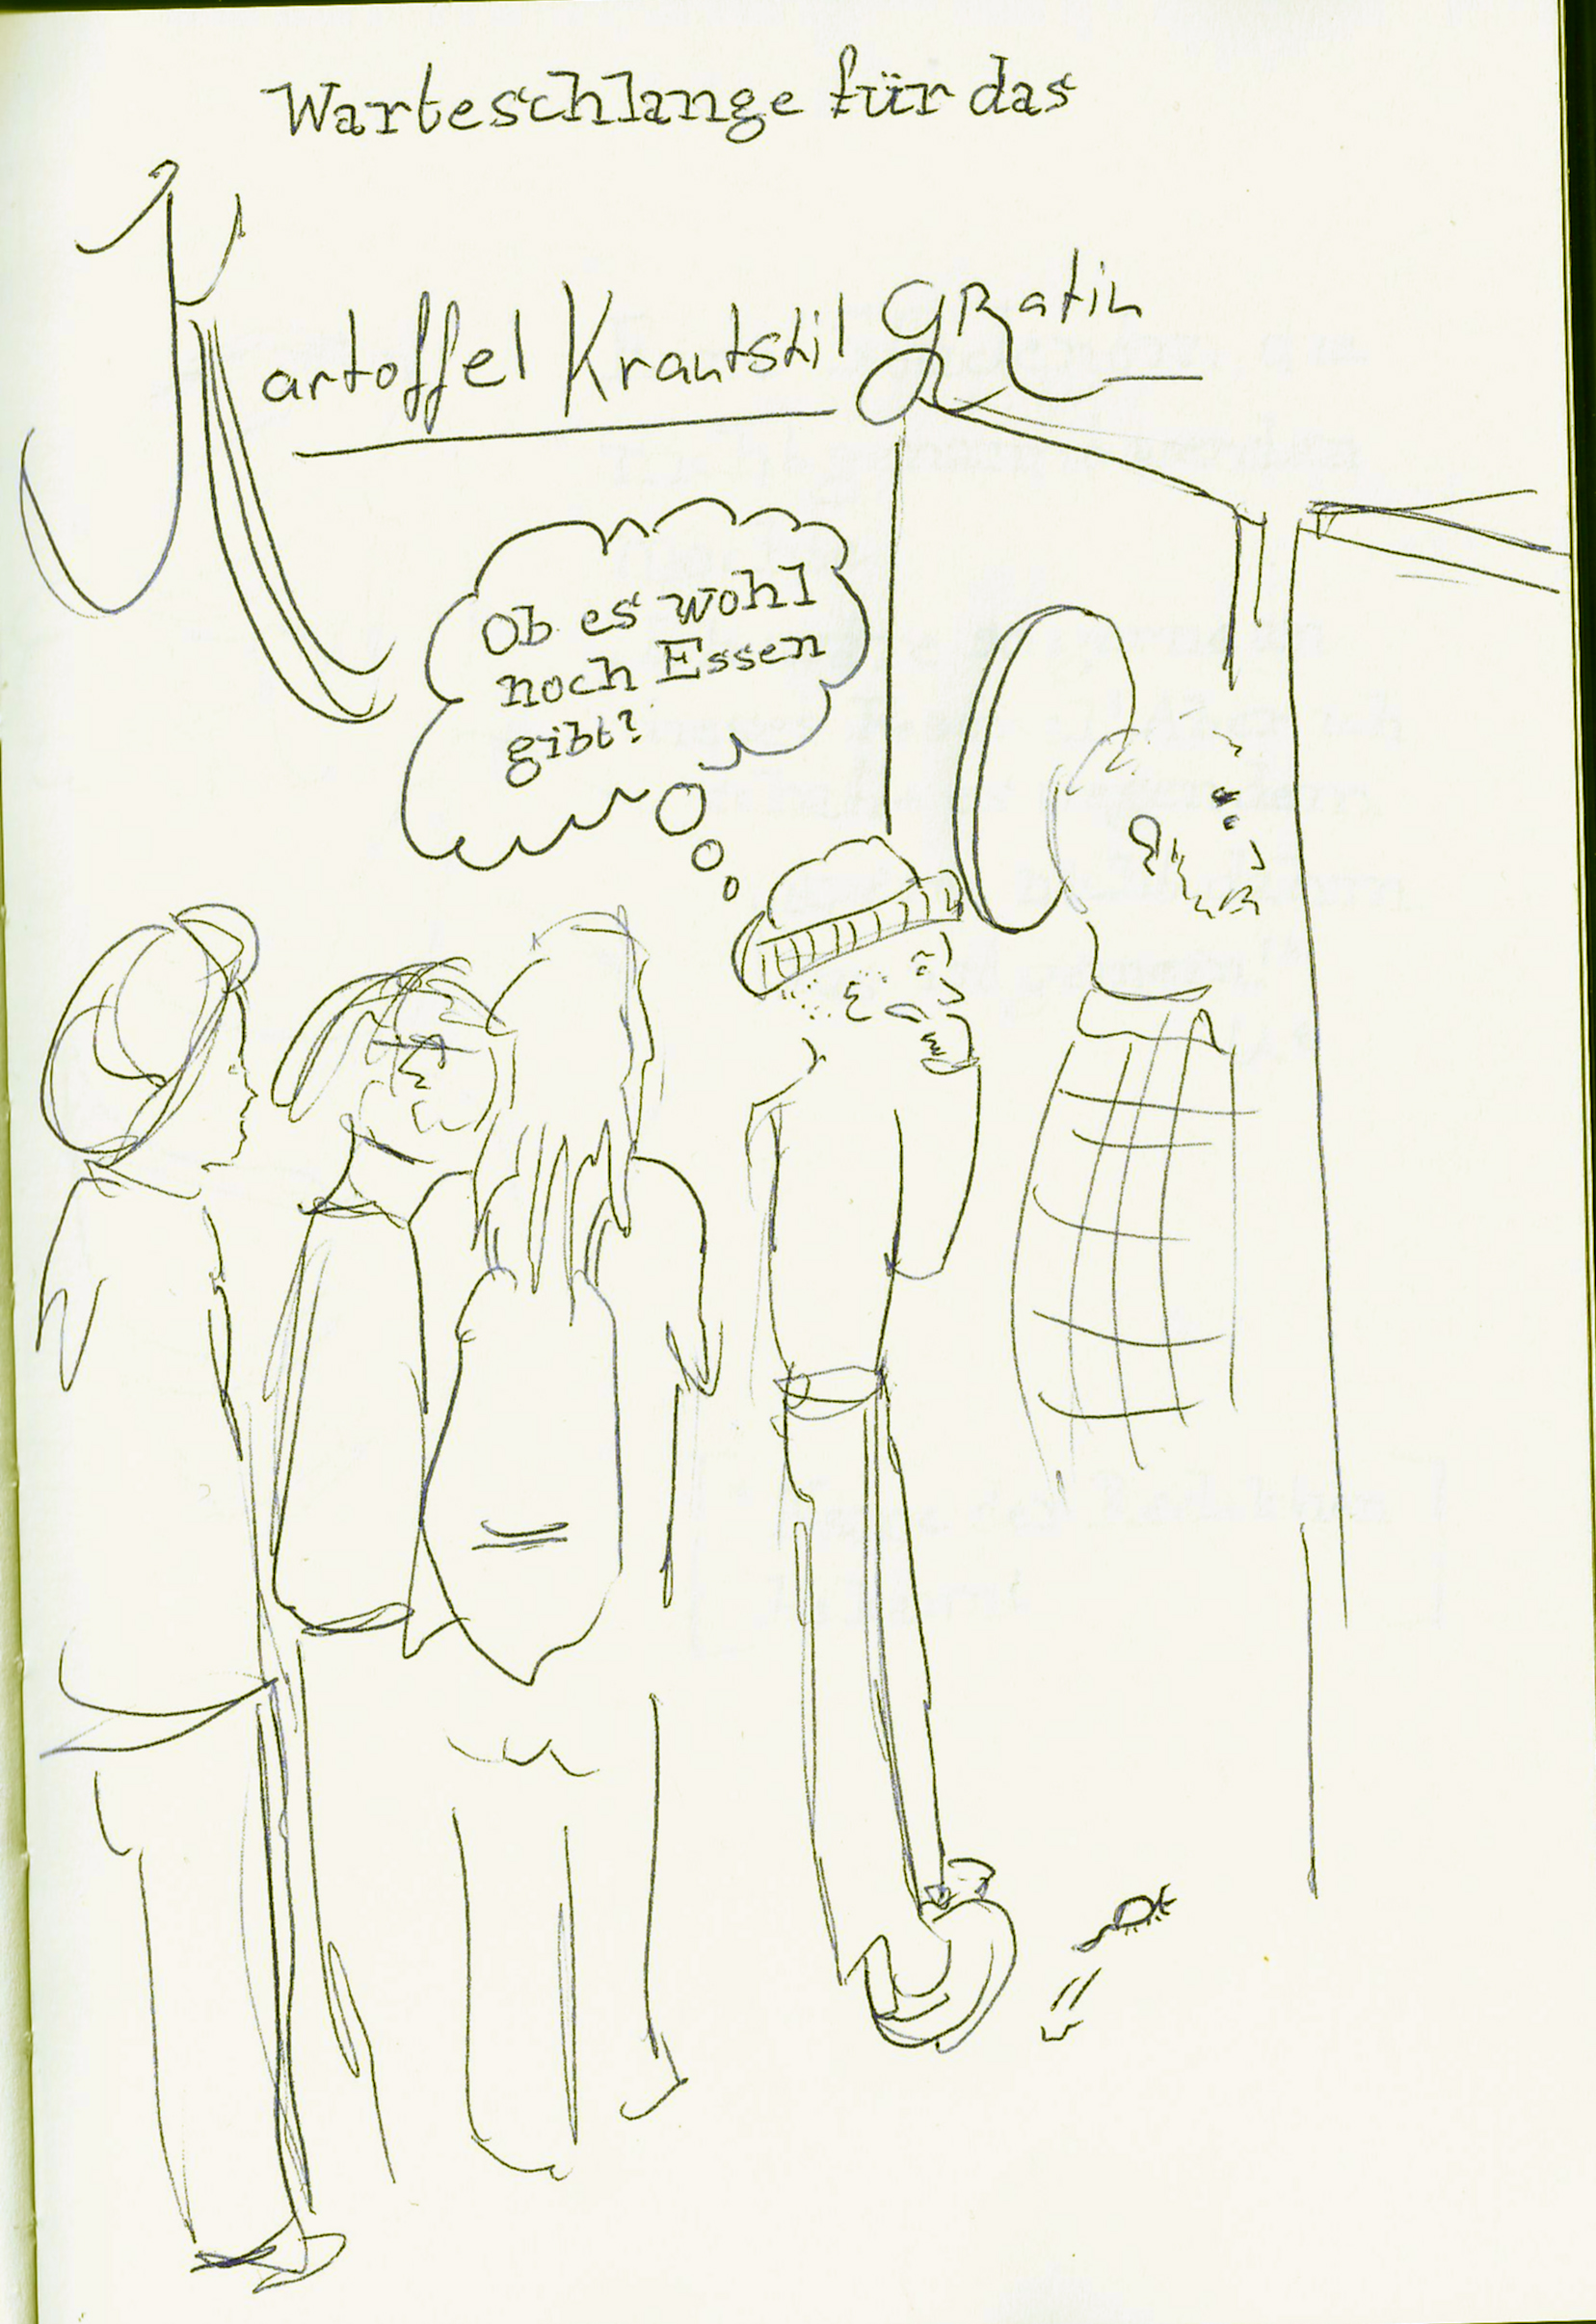 Warteschlange für das
Kartoffel Krautstil GRatin
Ob es wohl
noch Essen
gibt?